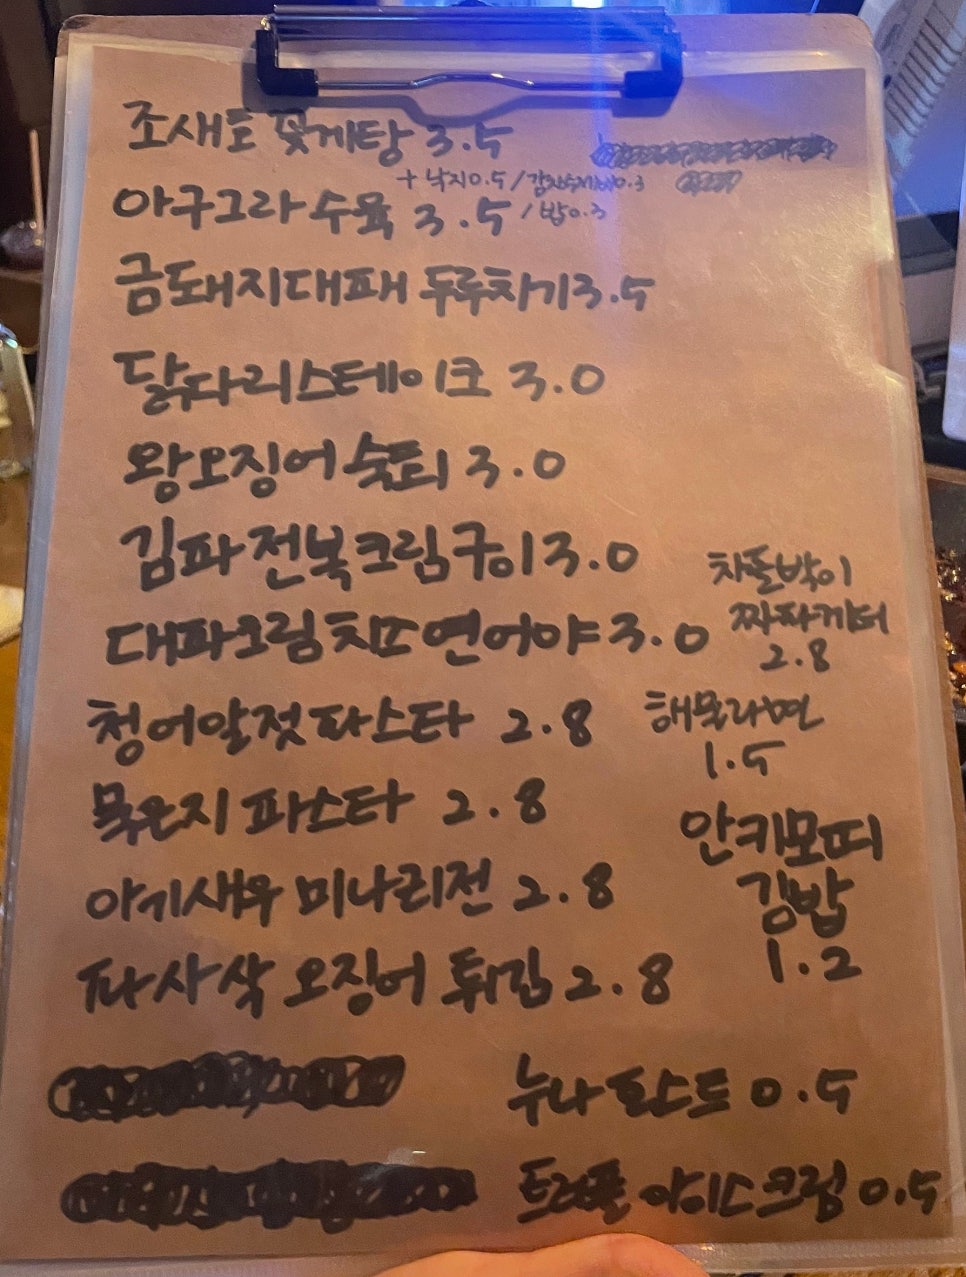 조새토 꽃게탕 3.5
+ 낙지0.5/감자수제비0.3
/밥0.3
아구그라수육 3.5
금돼지대패 두루치기3.5
닭다리스테이크 3.0
왕오징어숏퇴 3.0
김파전복크림구이3.0
대파크림치즈연어야3.0
차돌박이
짜파게티
2.8
청어알젓파스타 2.8
해물라면
1.5
묵은지 파스타 2.8
안키모띠
김밥
1.2
아기새우 미나리전 2.8
파사삭 오징어 튀김 2.8
누나 토스트 0.5
트러플 아이스크림 0.5